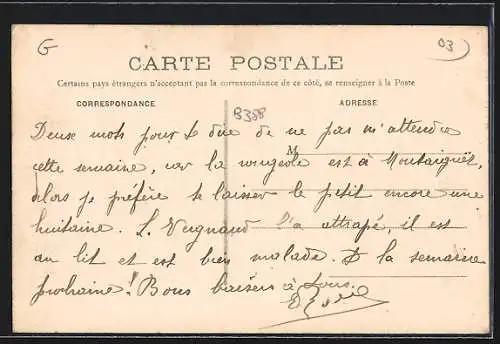 G
03
CARTE POSTALE
Certains pays étrangers n'acceptant pas la correspondance de ce côté, se renseigner à la Poste
CORRESPONDANCE
ADRESSE
B388
M
Deux mots pour te dire de ne pas m'attendre
cette semaine, car la rougeole est à Montaiguët,
alors je préfère te laisser le petit encore une
huitaine. L. Vergnaud l'a attrapé, il est
au lit et est bien malade. A la semaine
prochaine! Bons baisers à tous.